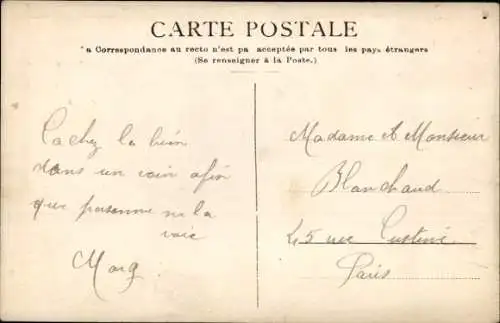 CARTE POSTALE
a Correspondance au recto n'est pa acceptée par tous les pays étrangers
(Se renseigner à la Poste.)
Cachez la bien
dans un coin afin
que personne ne la
voie
Marg
Madame et Monsieur
Blanchaud
45 rue Custine
Paris